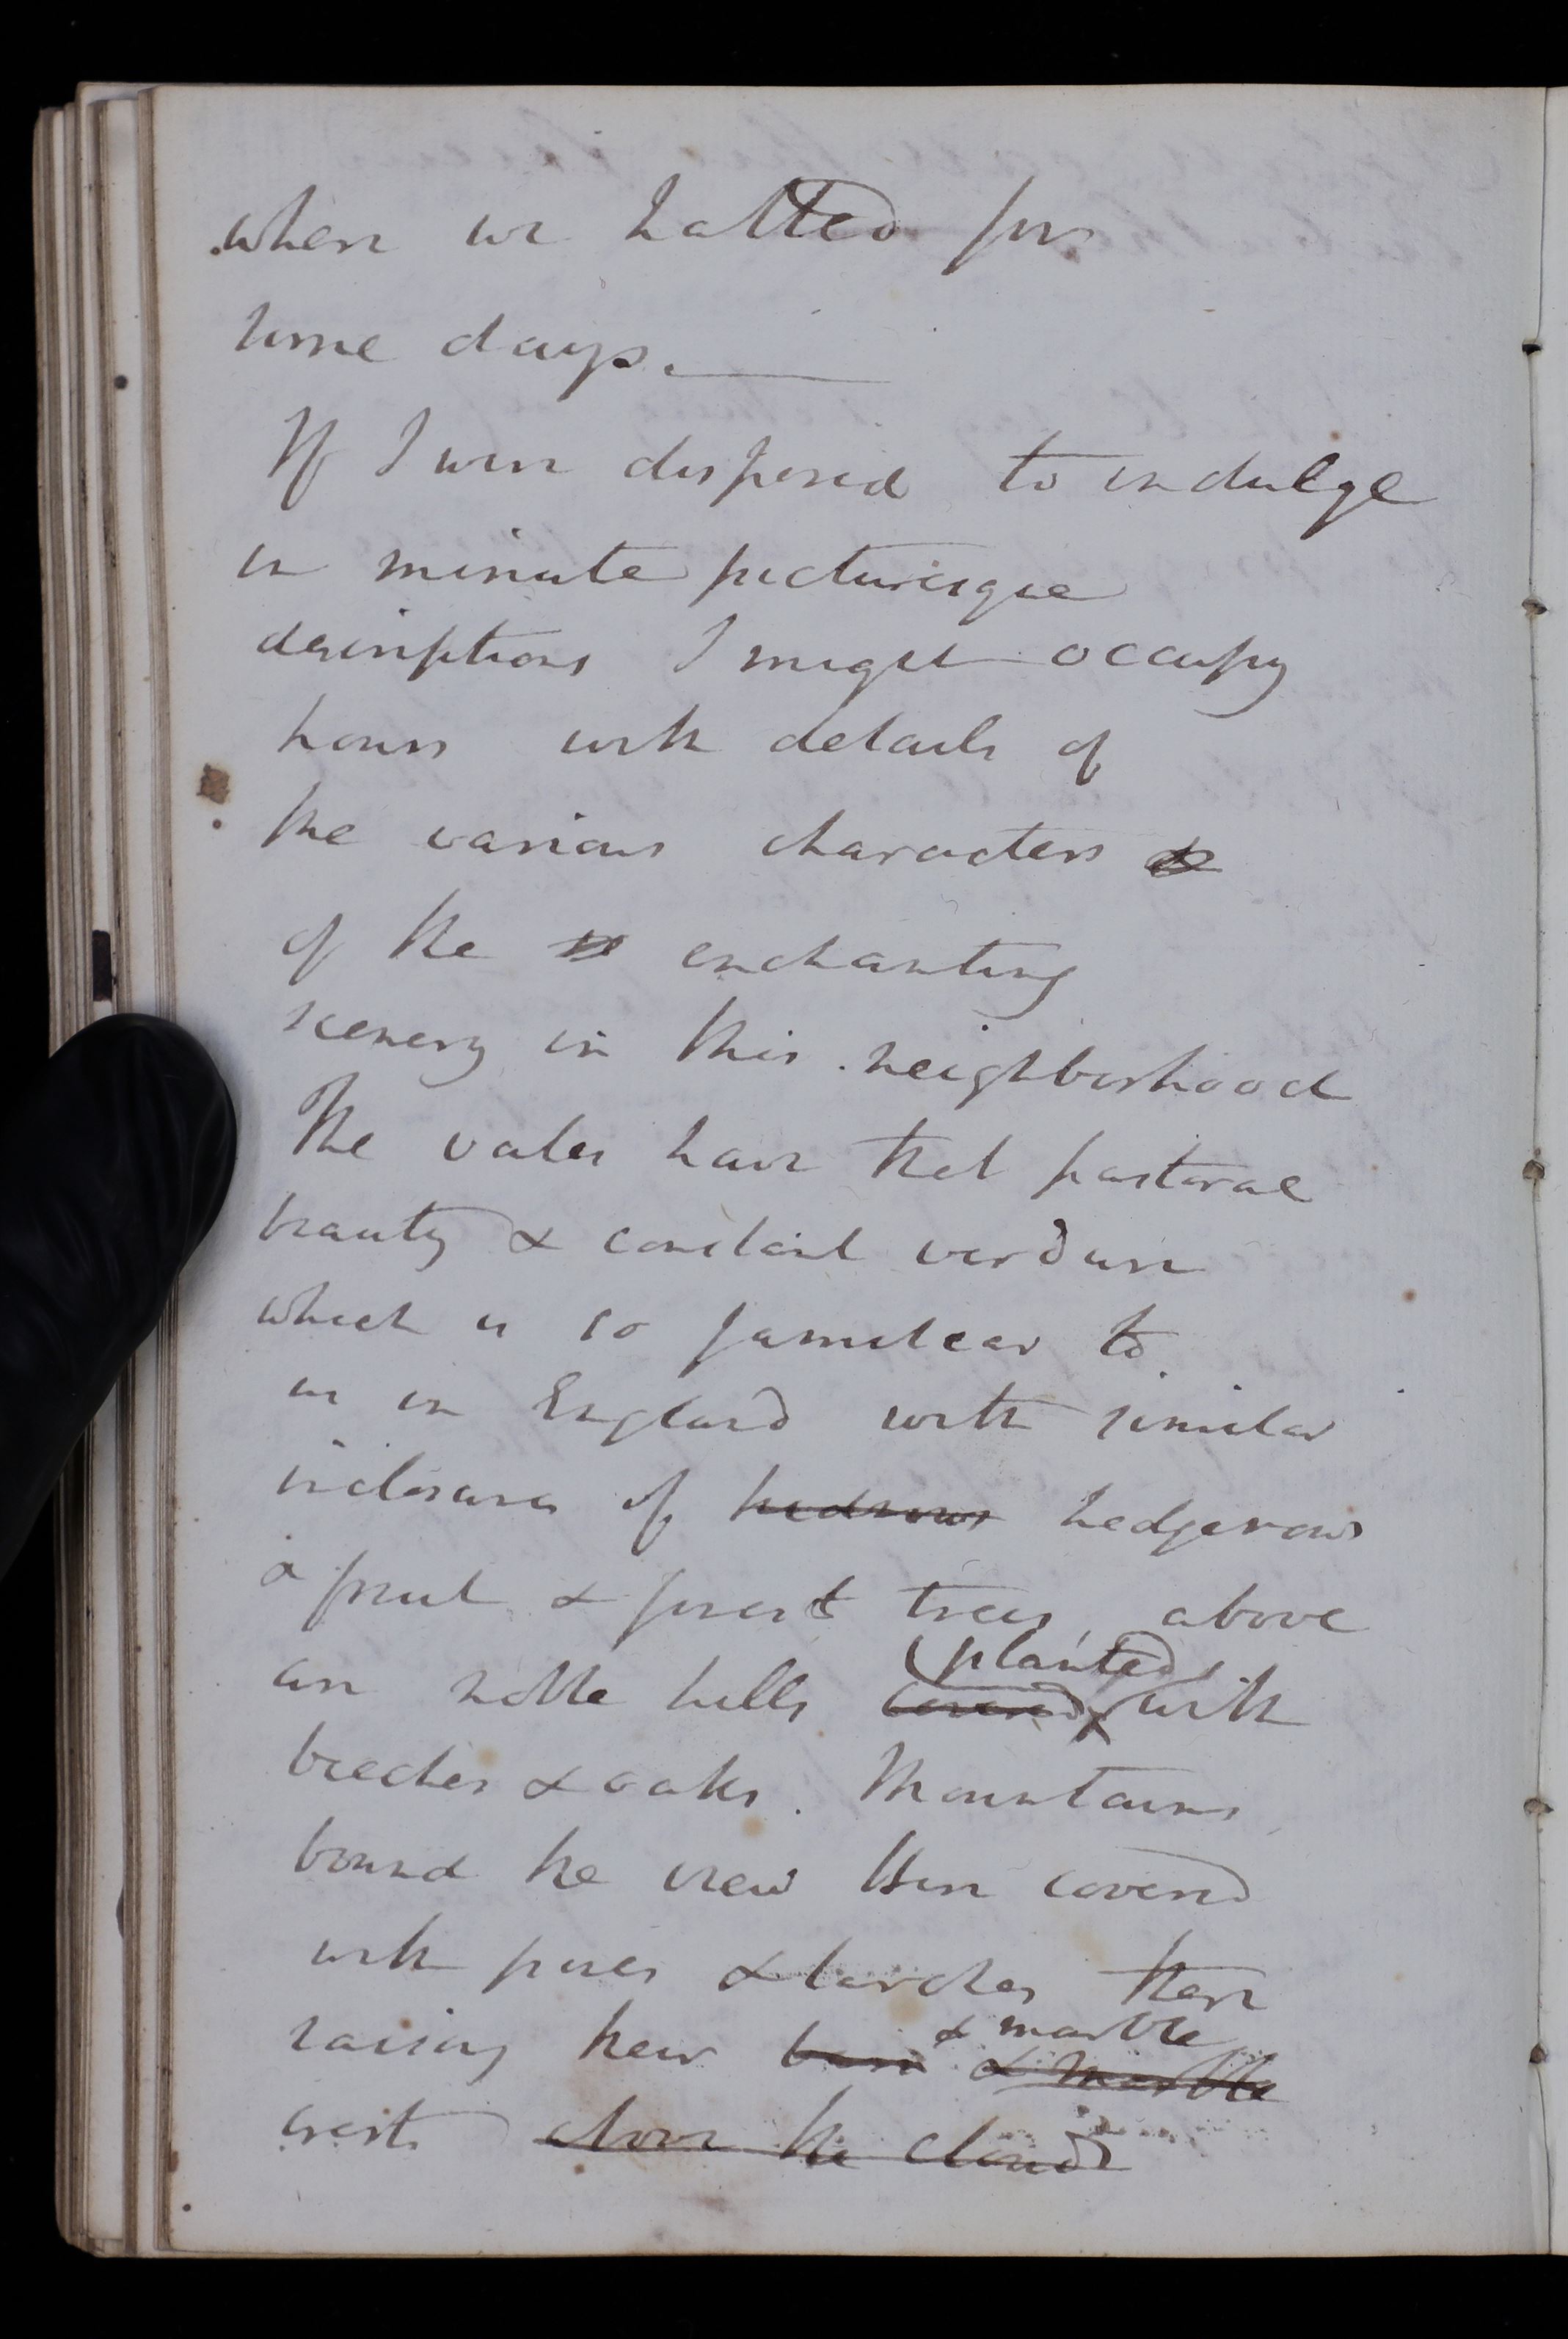 where we halted for
some days.
If I were disposed to indulge
in minute picturesque
descriptions I might occupy
hours with details of
the various characters
of the enchanting
scenery in this neighborhood
The vales have that pastoral
beauty & constant verdure
which is so familiar to
us in England with similar
inclosures of hedrows hedgerows
& fruit & forest trees, above
are noble hills covered planted with
beeches & oaks. Mountains
bound the view here covered
with pines & larches there
raising their bare & marble & marble
crests above the clouds